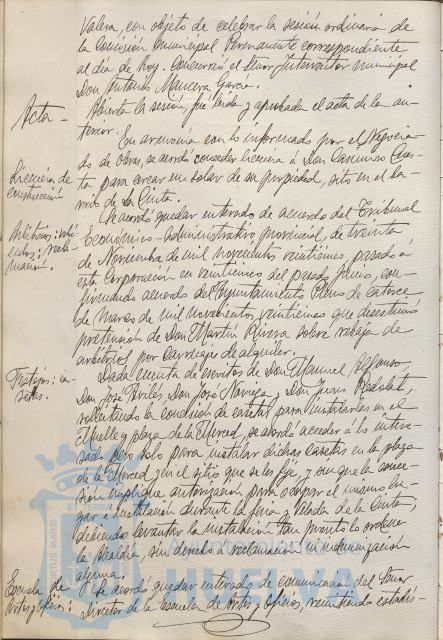 Valera, con objeto de celebrar la sesión ordinaria de
la Comisión Municipal Permanente correspondiente
al día de hoy. Concurrió el Señor Interventor municipal
Don Antonio Manera García.
Acta -
Abierta la sesión fué leída y aprobada el acta de la an-
terior.
Licencia de
construcción
En armonía con lo informado por el Negocia-
do de obras, se acordó conceder licencia á Don Casimiro Cues-
ta para cercar un solar de su propiedad, sito en el ba-
rrio de la Cinta.
Arbitrios:
Se acordó quedar enterado de acuerdo del Tribunal
Económico-administrativo provincial, de treinta
de Noviembre de mil novecientos veintiénes, pasado a
esta Corporación en veintiuno del pasado Junio, con-
firmando acuerdo del Ayuntamiento Pleno de catorce
de marzo de mil novecientos veintiénes que desestimó
pretensión de Don Martín Rivera sobre rebaja de
arbitrios por carruajes de alquiler.
Festejos: ca-
setas.
Dada cuenta de escritos de Don Manuel Alfonso,
Don José Avilés, Don José Noriega y Don Juan
solicitando la concesión de casetas para instalarlas en el
Muelle y plaza de la Merced, se acordó acceder á lo intere-
sado pero solo para instalar dichas casetas en la plaza
de la Merced y en el sitio que se les fije y sin que la conce-
sión implique autorización para ocupar el mismo lu-
gar é instalación durante la feria y Velada de la Cinta,
debiendo levantar la instalación tan pronto lo ordene
la Alcaldía, sin derecho á reclamación ni indemnización
alguna.
Escuela de
Artes y Oficios:
Se acordó quedar enterado de comunicación del Señor
Director de la Escuela de Artes y Oficios, remitiendo estadís-
HUELVA